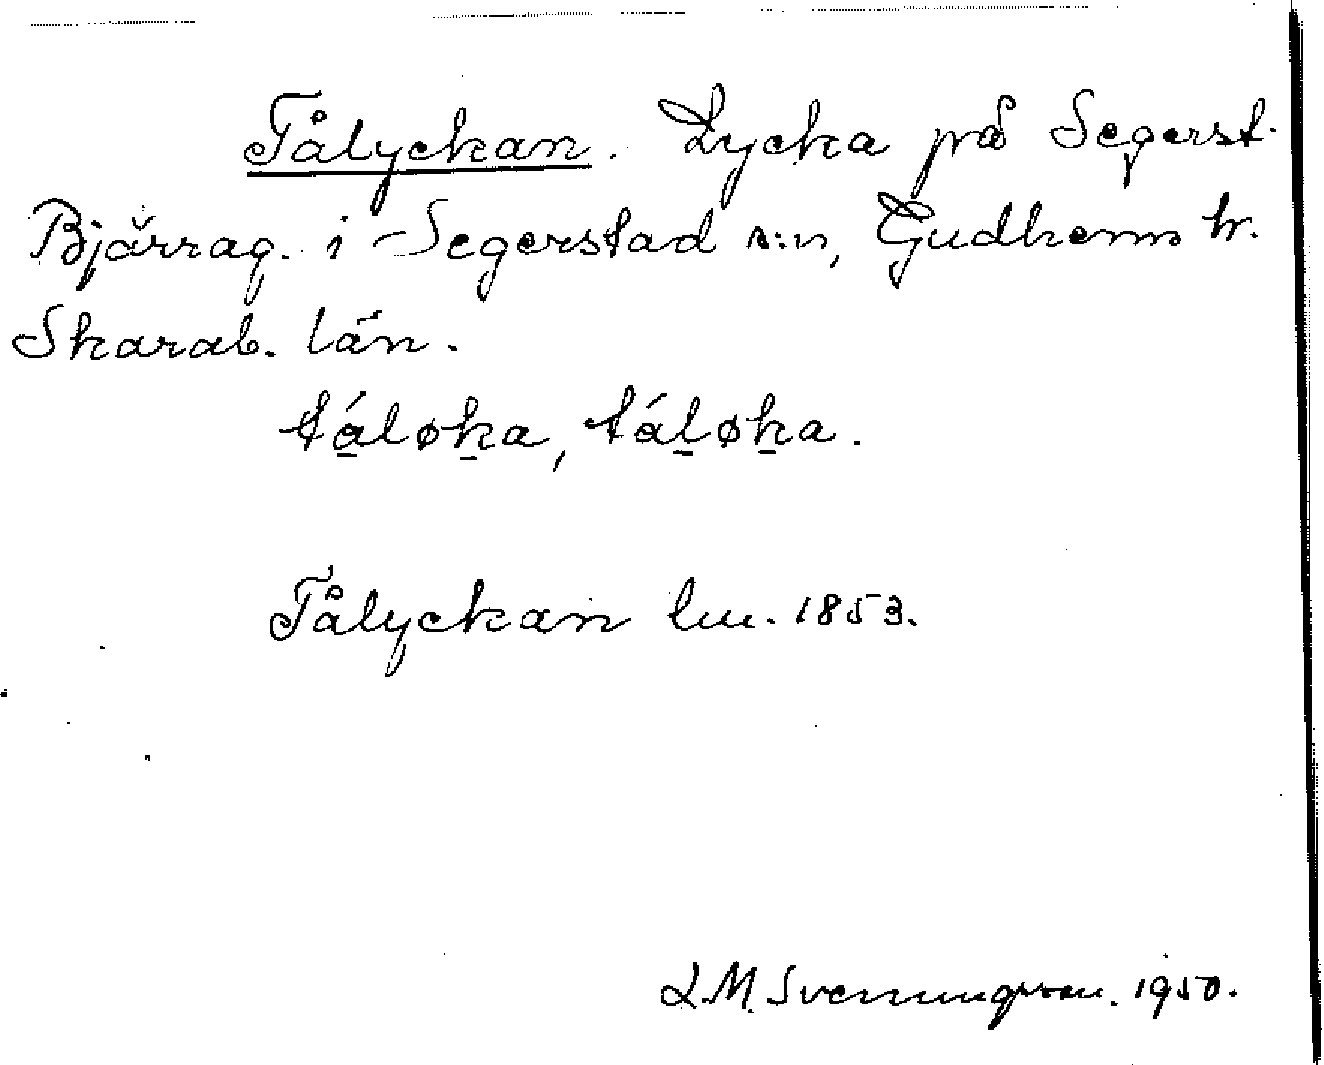 Tålyckan. Lycka på Segerst.
Bjärrag. i Segerstad s:n, Gudhems hr.
Skarab. län.
tá̱løḵa, táḻøḵa.
Tålyckan lm. 1853.
L.M. Svenungsson. 1950.